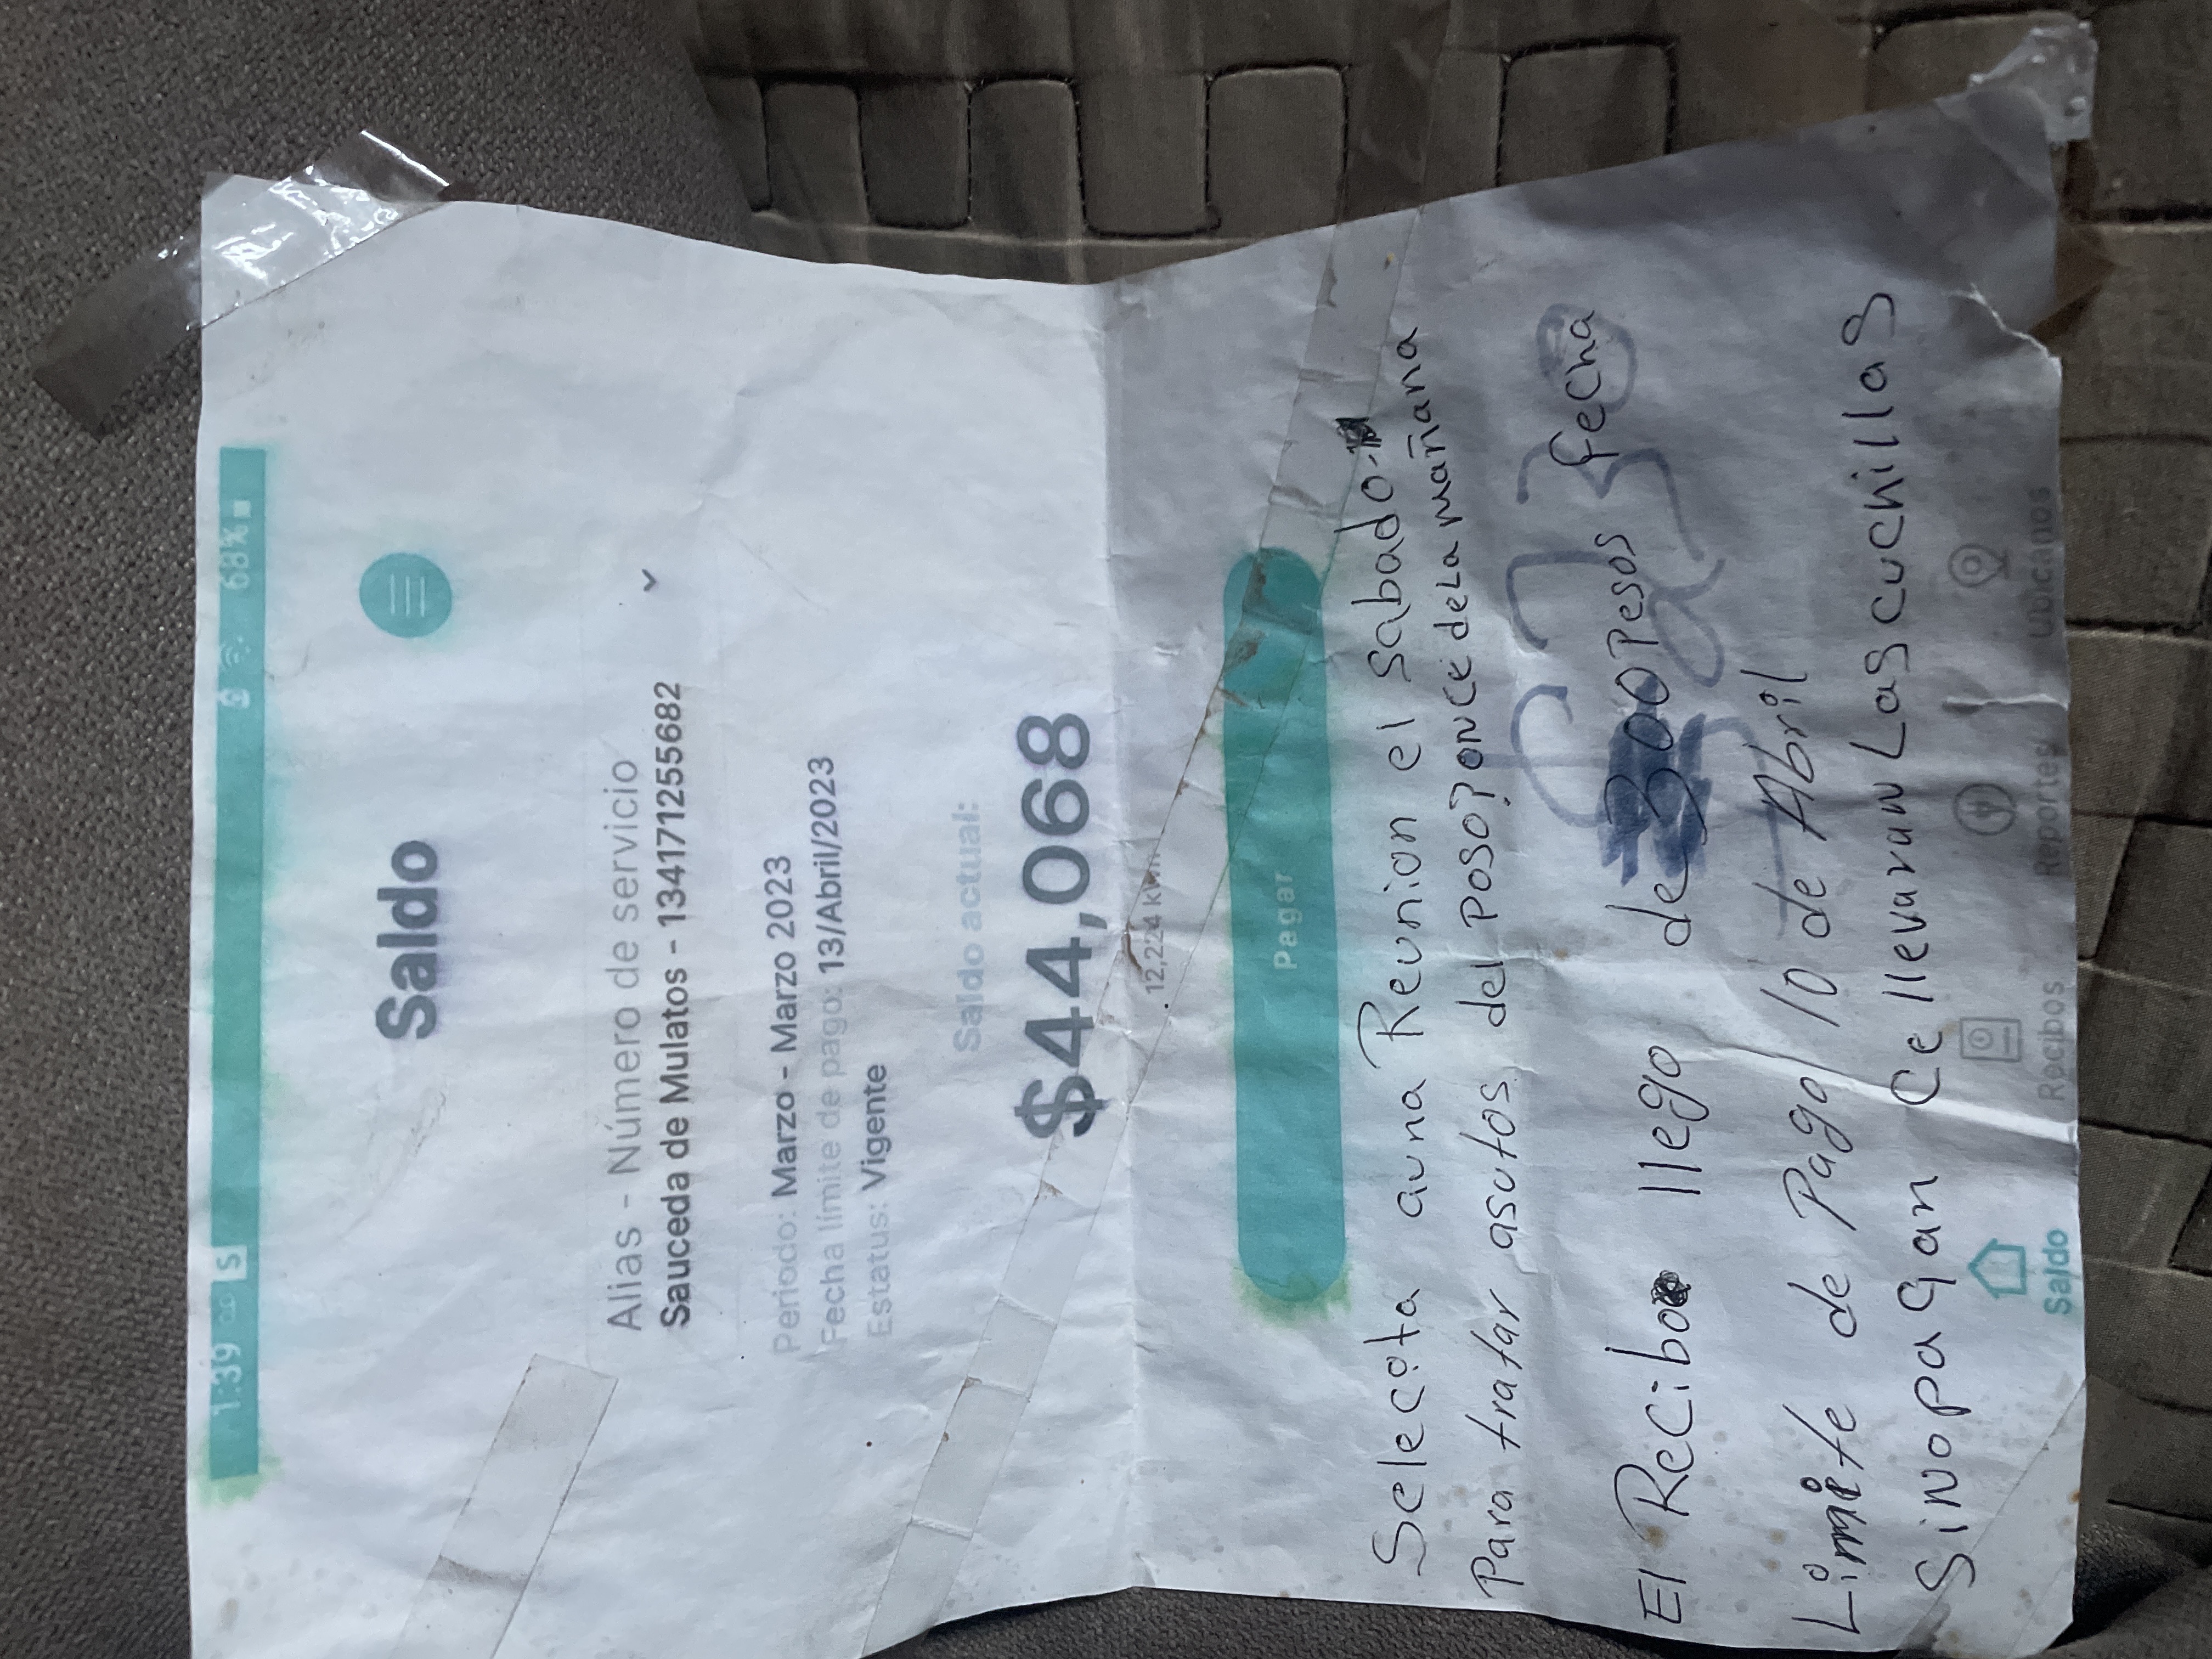 1:39 S 68%
Saldo
Alias - Número de servicio
Sauceda de Mulatos - 134171255682
Periodo: Marzo - Marzo 2023
Fecha límite de pago: 13/Abril/2023
Estatus: Vigente
Saldo actual:
$44,068
12,224 kWh
Pagar
Selecita auna Reunion el sabado
Para tratar asutos del Poso? once dela mañana
El Recibo llego de 300 Pesos fecha
Limite de Pago 10 de Abril
Sinopagan Ce llevaran Las cuchillas
Saldo Recibos Reportes Ubícanos